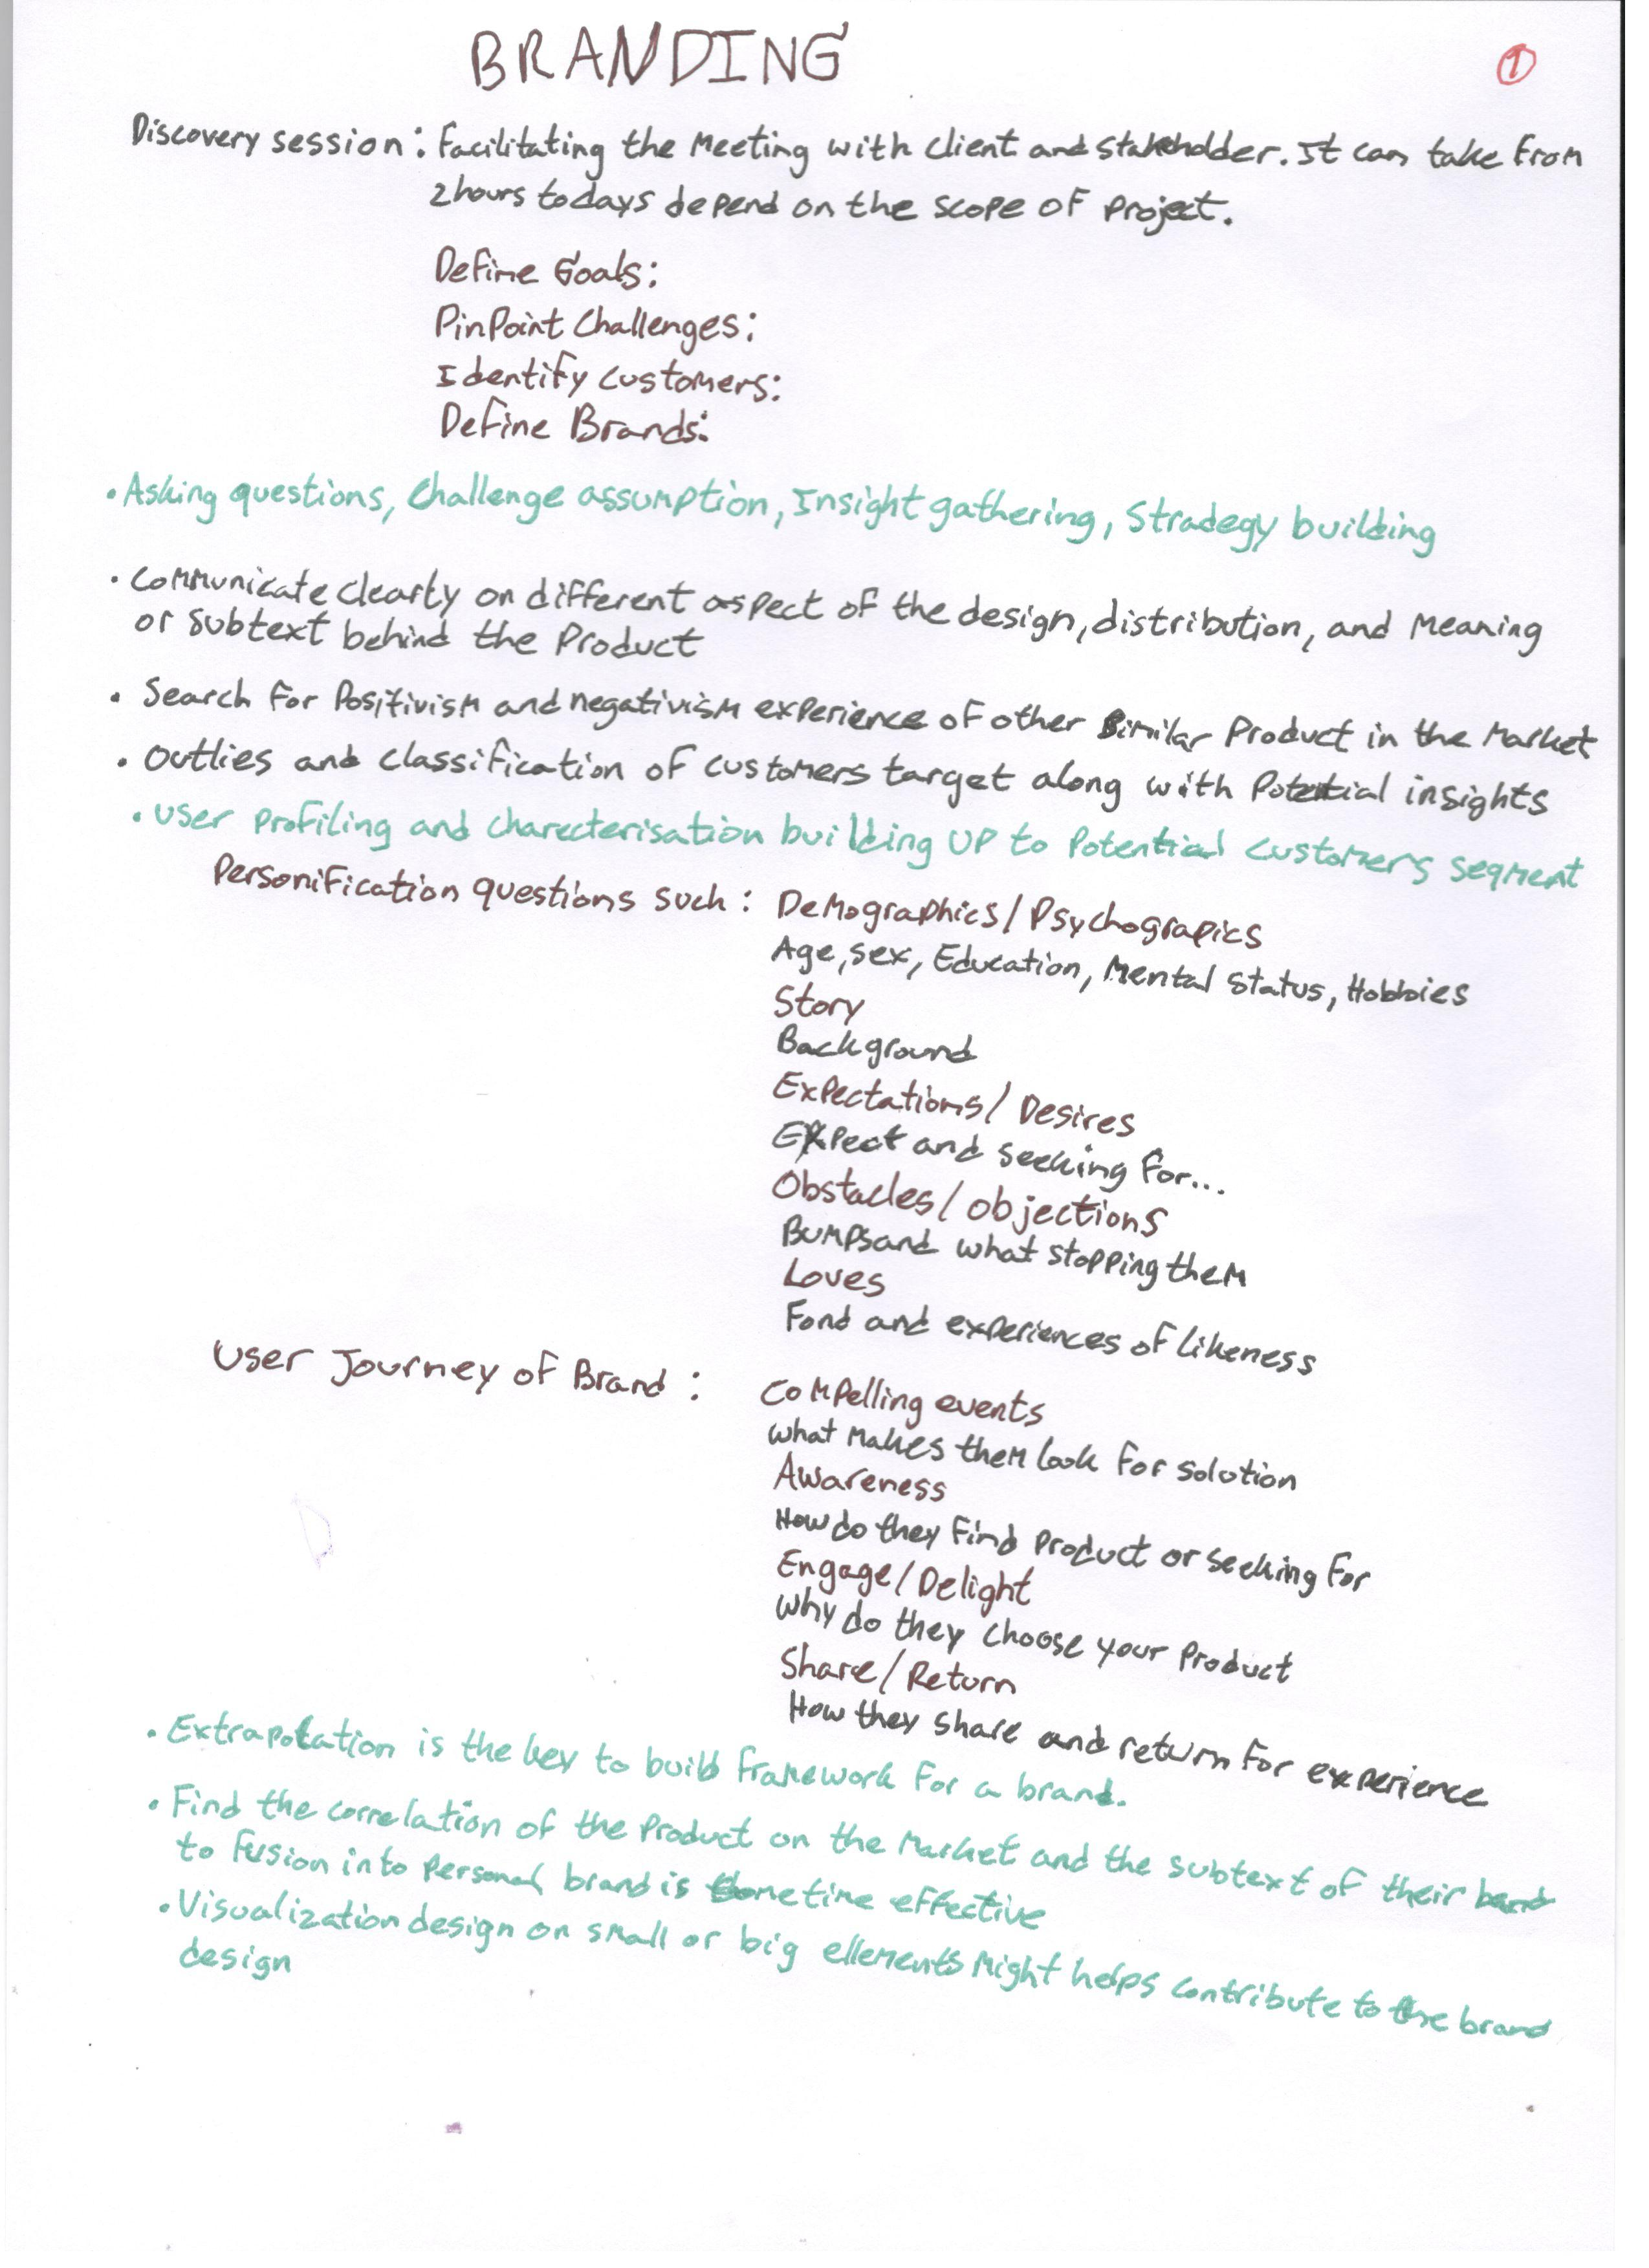 BRANDING
1
Discovery session: Facilitating the Meeting with client and stakeholder. It can take from
2 hours to days depend on the scope of project.
Define Goals:
PinPoint Challenges:
Identify customers:
Define Brands:
• Asking questions, Challenge assumption, Insight gathering, Stradegy building
• Communicate clearly on different aspect of the design, distribution, and Meaning
or subtext behind the Product
• Search for Positivism and negativism experience of other Similar Product in the Market
• Outlies and classification of customers target along with Potential insights
• User profiling and charecterisation building up to Potential customers segment
Personification questions such: Demographics/Psychograpics
Age, sex, Education, Mental status, Hobbies
Story
Background
Expectations/Desires
Expect and seeking for...
Obstacles/objections
Bumps and what stopping them
Loves
Fond and experiences of likeness
User Journey of Brand: Compelling events
what Makes them look for solution
Awareness
How do they find product or seeking for
Engage/Delight
Why do they choose your product
Share/Return
How they share and return for experience
• Extrapolation is the key to build framework for a brand.
• Find the correlation of the Product on the Market and the subtext of their brand
to fusion into personal brand is sometime effective
• Visualization design on small or big ellements Might helps contribute to the brand
design